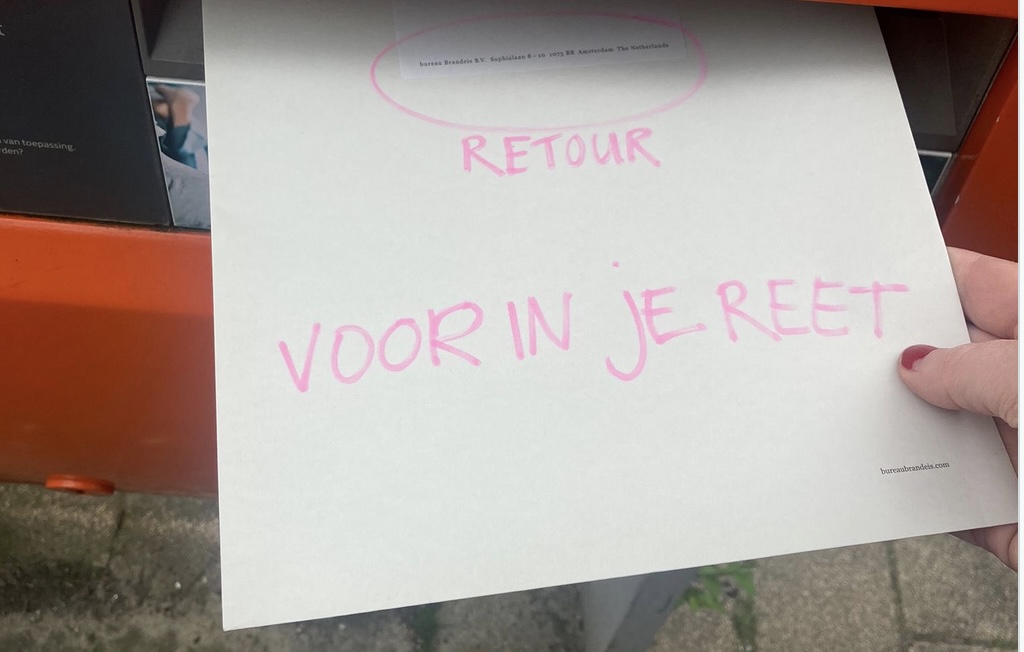 van toepassing.
rden?
bureau Brandeis B.V. Sophialaan 8 – 10 1075 BR Amsterdam The Netherlands
RETOUR
VOOR IN JE REET
bureaubrandeis.com